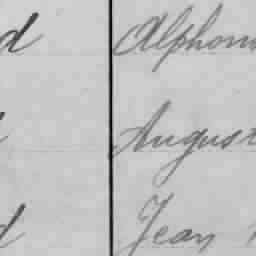 d Alphon
August
d Jean